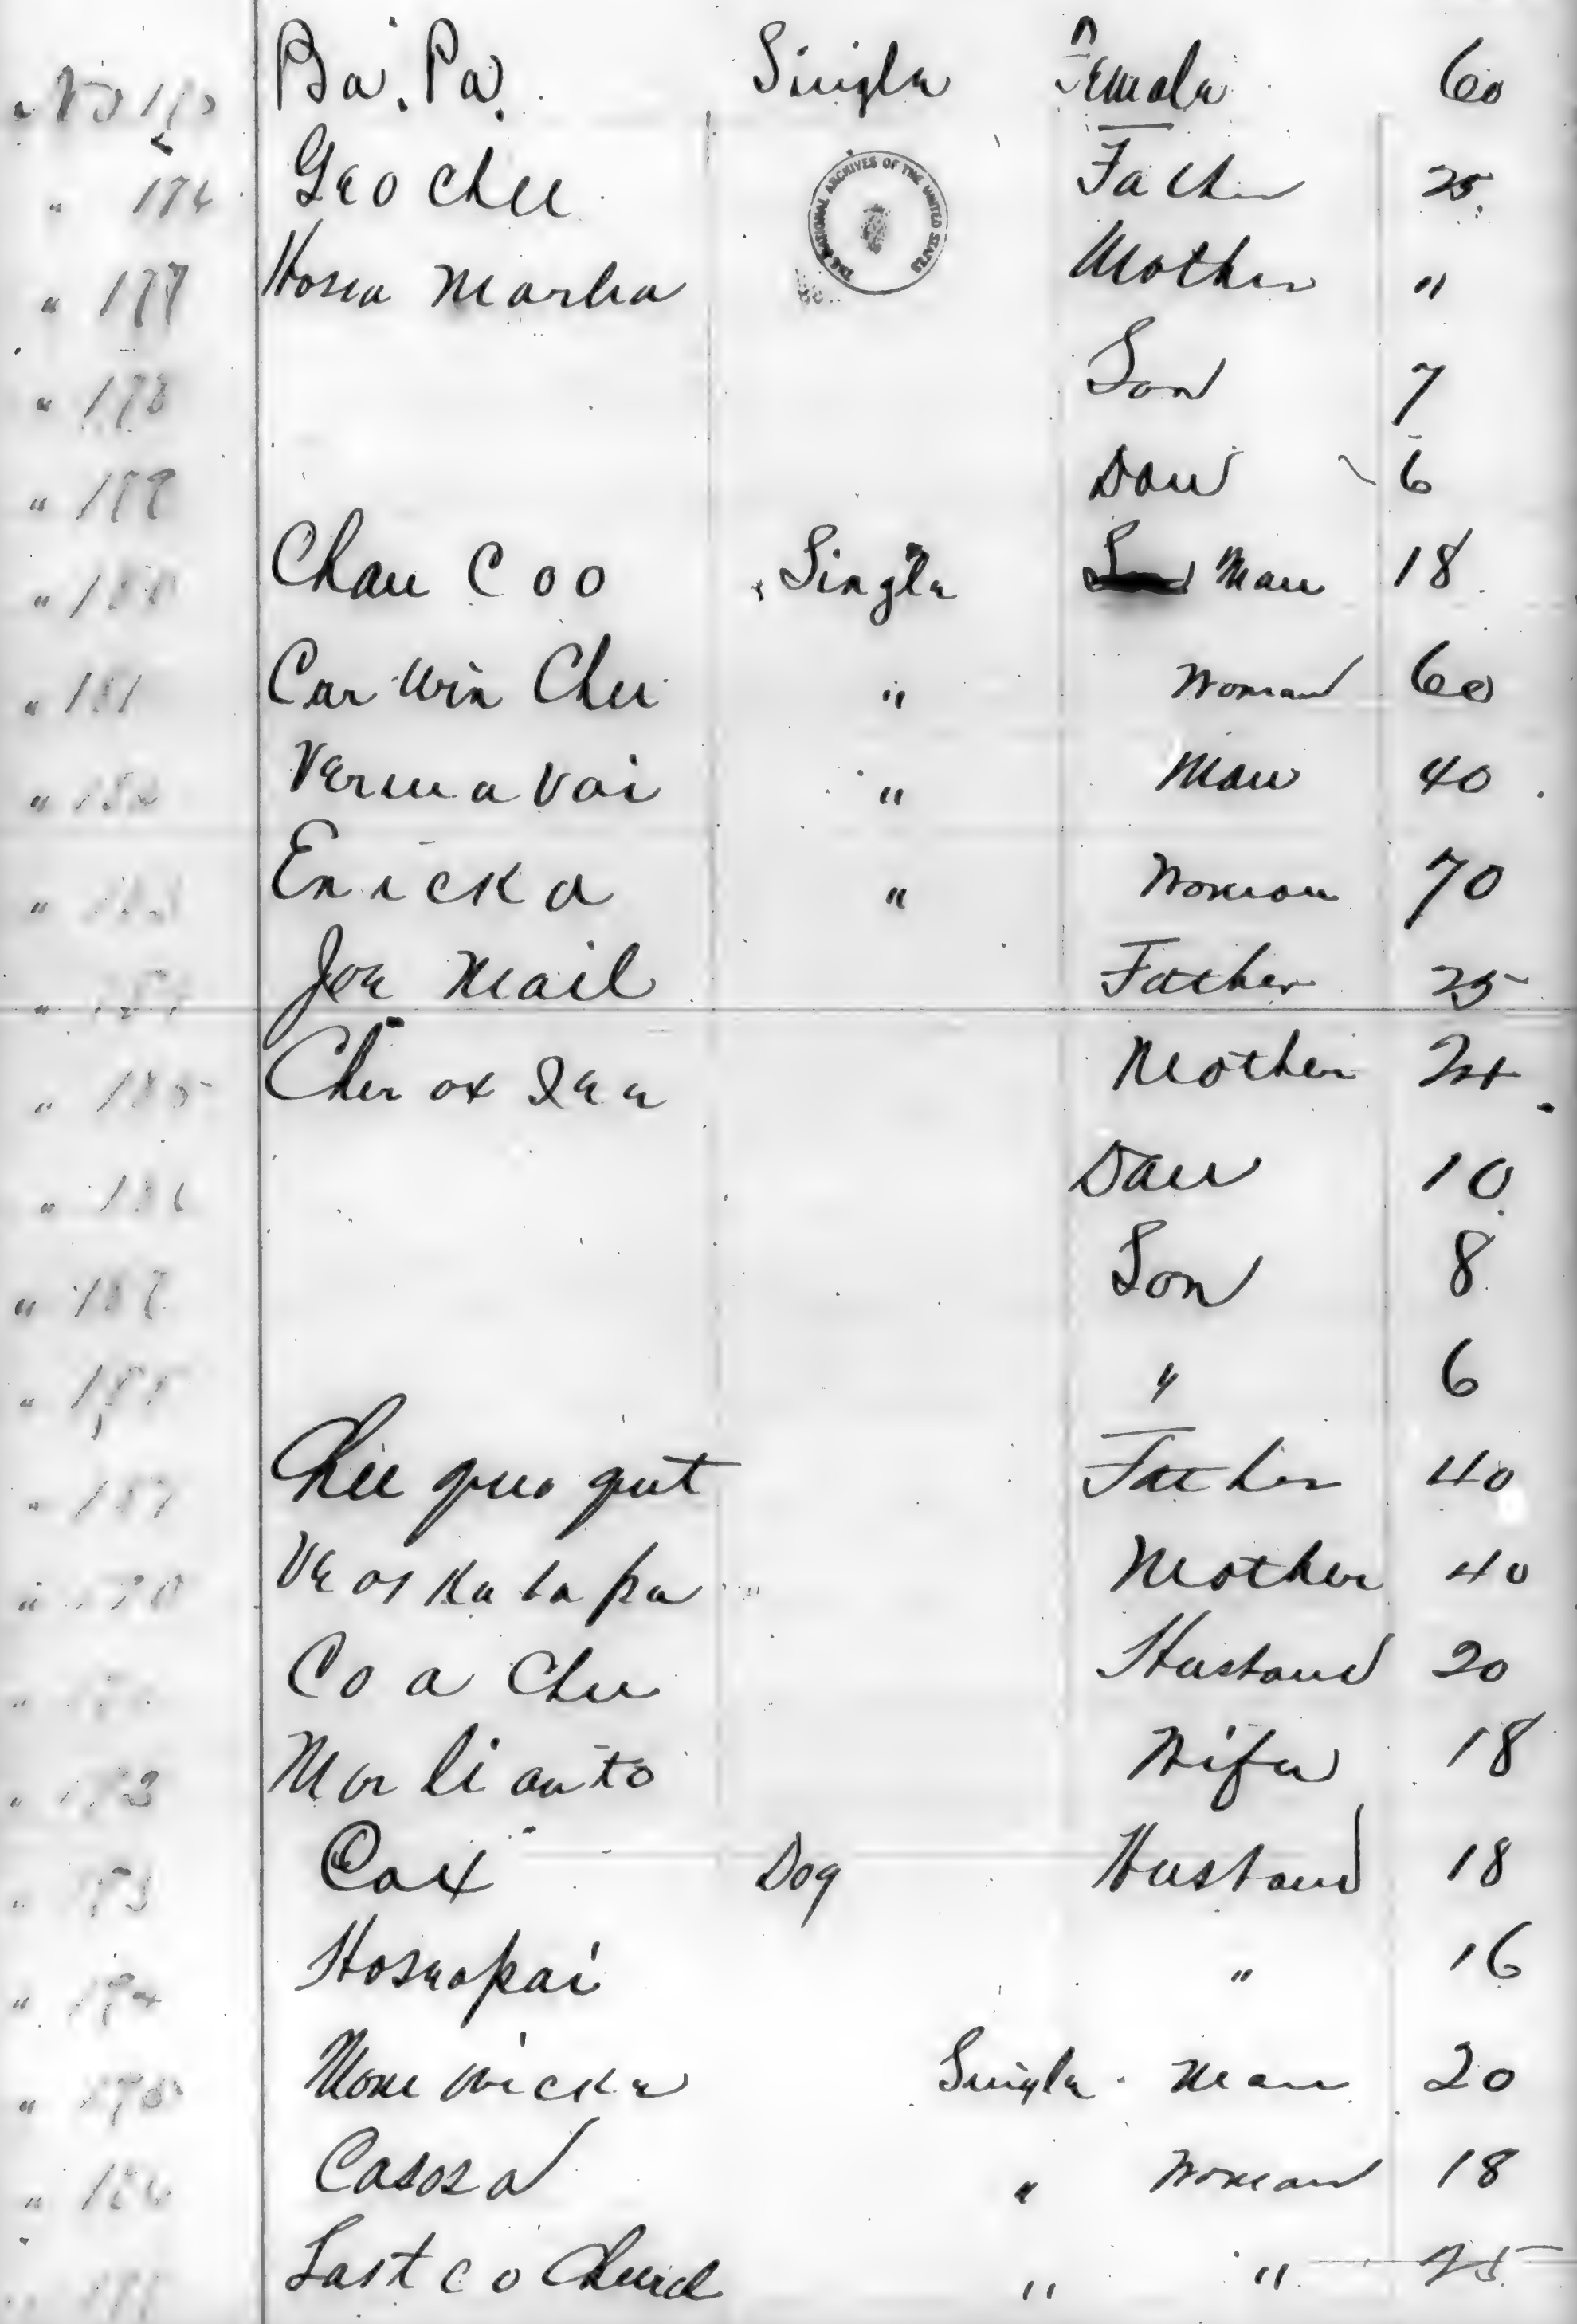 Ba. Pa. Single Female 60
" 176 Geo Chee Father 25
THE NATIONAL ARCHIVES OF THE UNITED STATES
" 177 Hosea Marha Mother "
" 178 Son 7
" 179 Dau 6
" 180 Chau Coo Single Man 18
" 181 Car Win Chee " Woman 60
" 182 Verma Vai " Man 40
" 183 Enicka " Woman 70
" Joe Mail Father 25
" 185 Cher ox Mother 24
" 186 Dau 10
" 187 Son 8
" 188 " 6
" 189 Chee quo qut Father 40
" Mother 40
" Co a Chee Husband 20
" Mor li an to Wife 18
" Cox Dog Husband 18
" Hoseapai " 16
" Mone wicke Single Man 20
" Casosa " Woman 18
" Last co " " 25